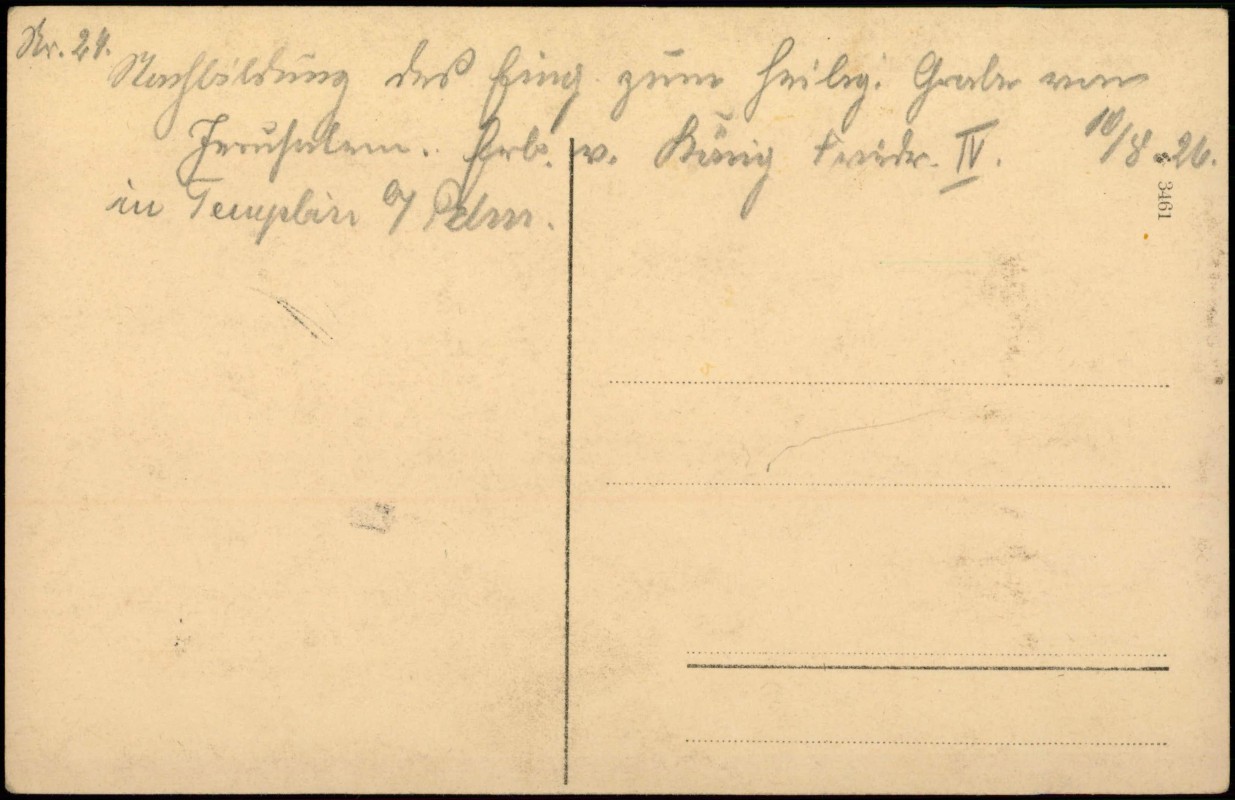 Nr. 24.
Nachbildung des Eing. zum heilig. Grabe von
Jerusalem. Erb. v. König Friedr. IV. 10/8.26.
in Templin a/
3461